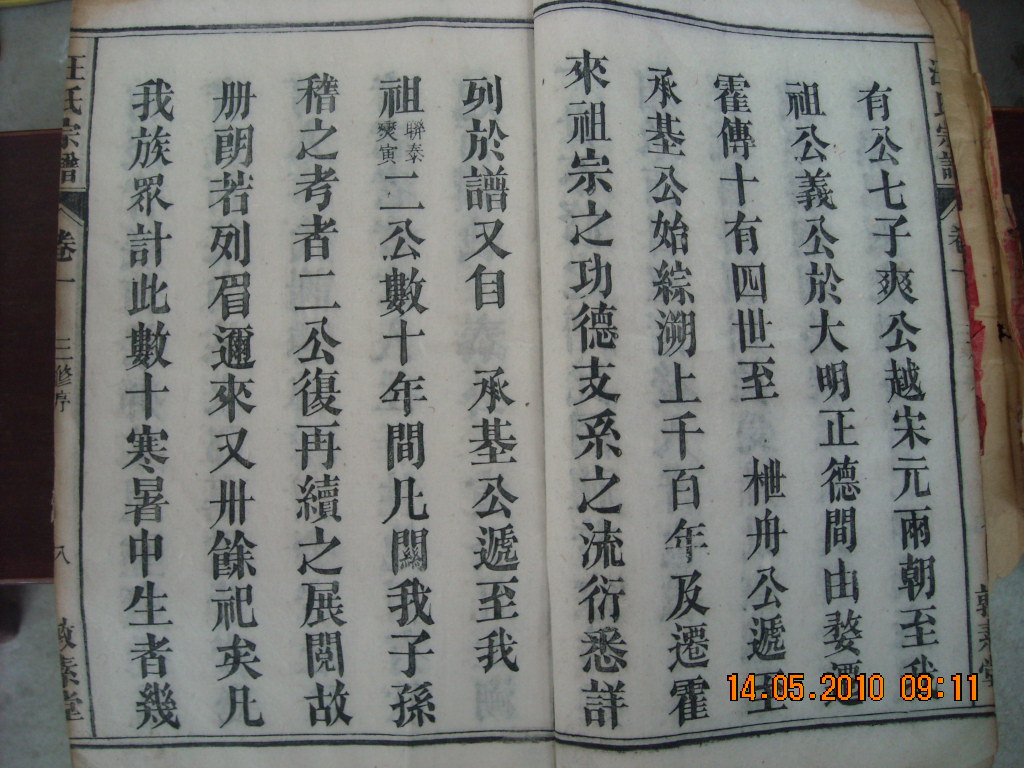 有公七子爽公越宋元兩朝至我
祖公義公於大明正德間由婺遷
霍傳十有四世至 枻舟公遞至
承基公始綜溯上千百年及遷霍
來祖宗之功德支系之流衍悉詳
列於譜又自 承基公遞至我
祖聯奏夾寅二公數十年間凡關我子孫
稽之考者二公復再續之展閱故
册朗若列眉邇來又卅餘祀矣凡
我族眾計此數十寒暑中生者幾
汪氏宗譜 卷一 三修序 八 敦素堂
14.05.2010 09:11